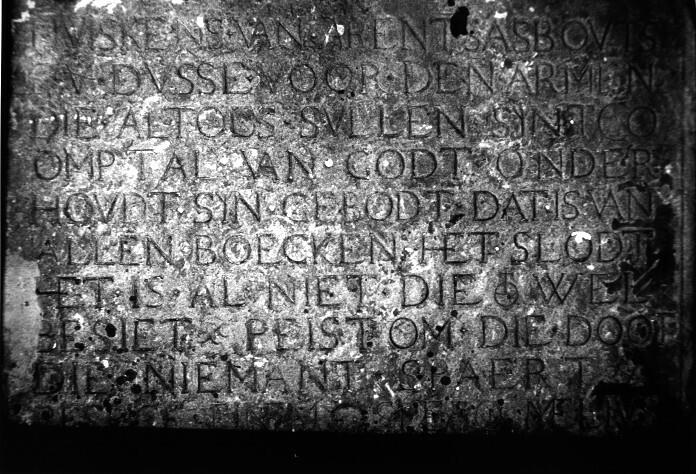 HVISKENS · VAN · ARENT SASBOVTS
DVSSE · VOOR · DEN ARMEN
DIE · ALTOOS · SVLLEN · SYN TCO
OMPT AL · VAN · GODT · ONDER
HOVDT · SYN · GEBODT · DAT · IS · VAN
ALLEN · BOECKEN · HET · SLODT
HET · IS · AL · NIET · DIE T WEL
BESIET · PEIST · OM · DIE · DOOT
DIE · NIEMANT · SPAERT